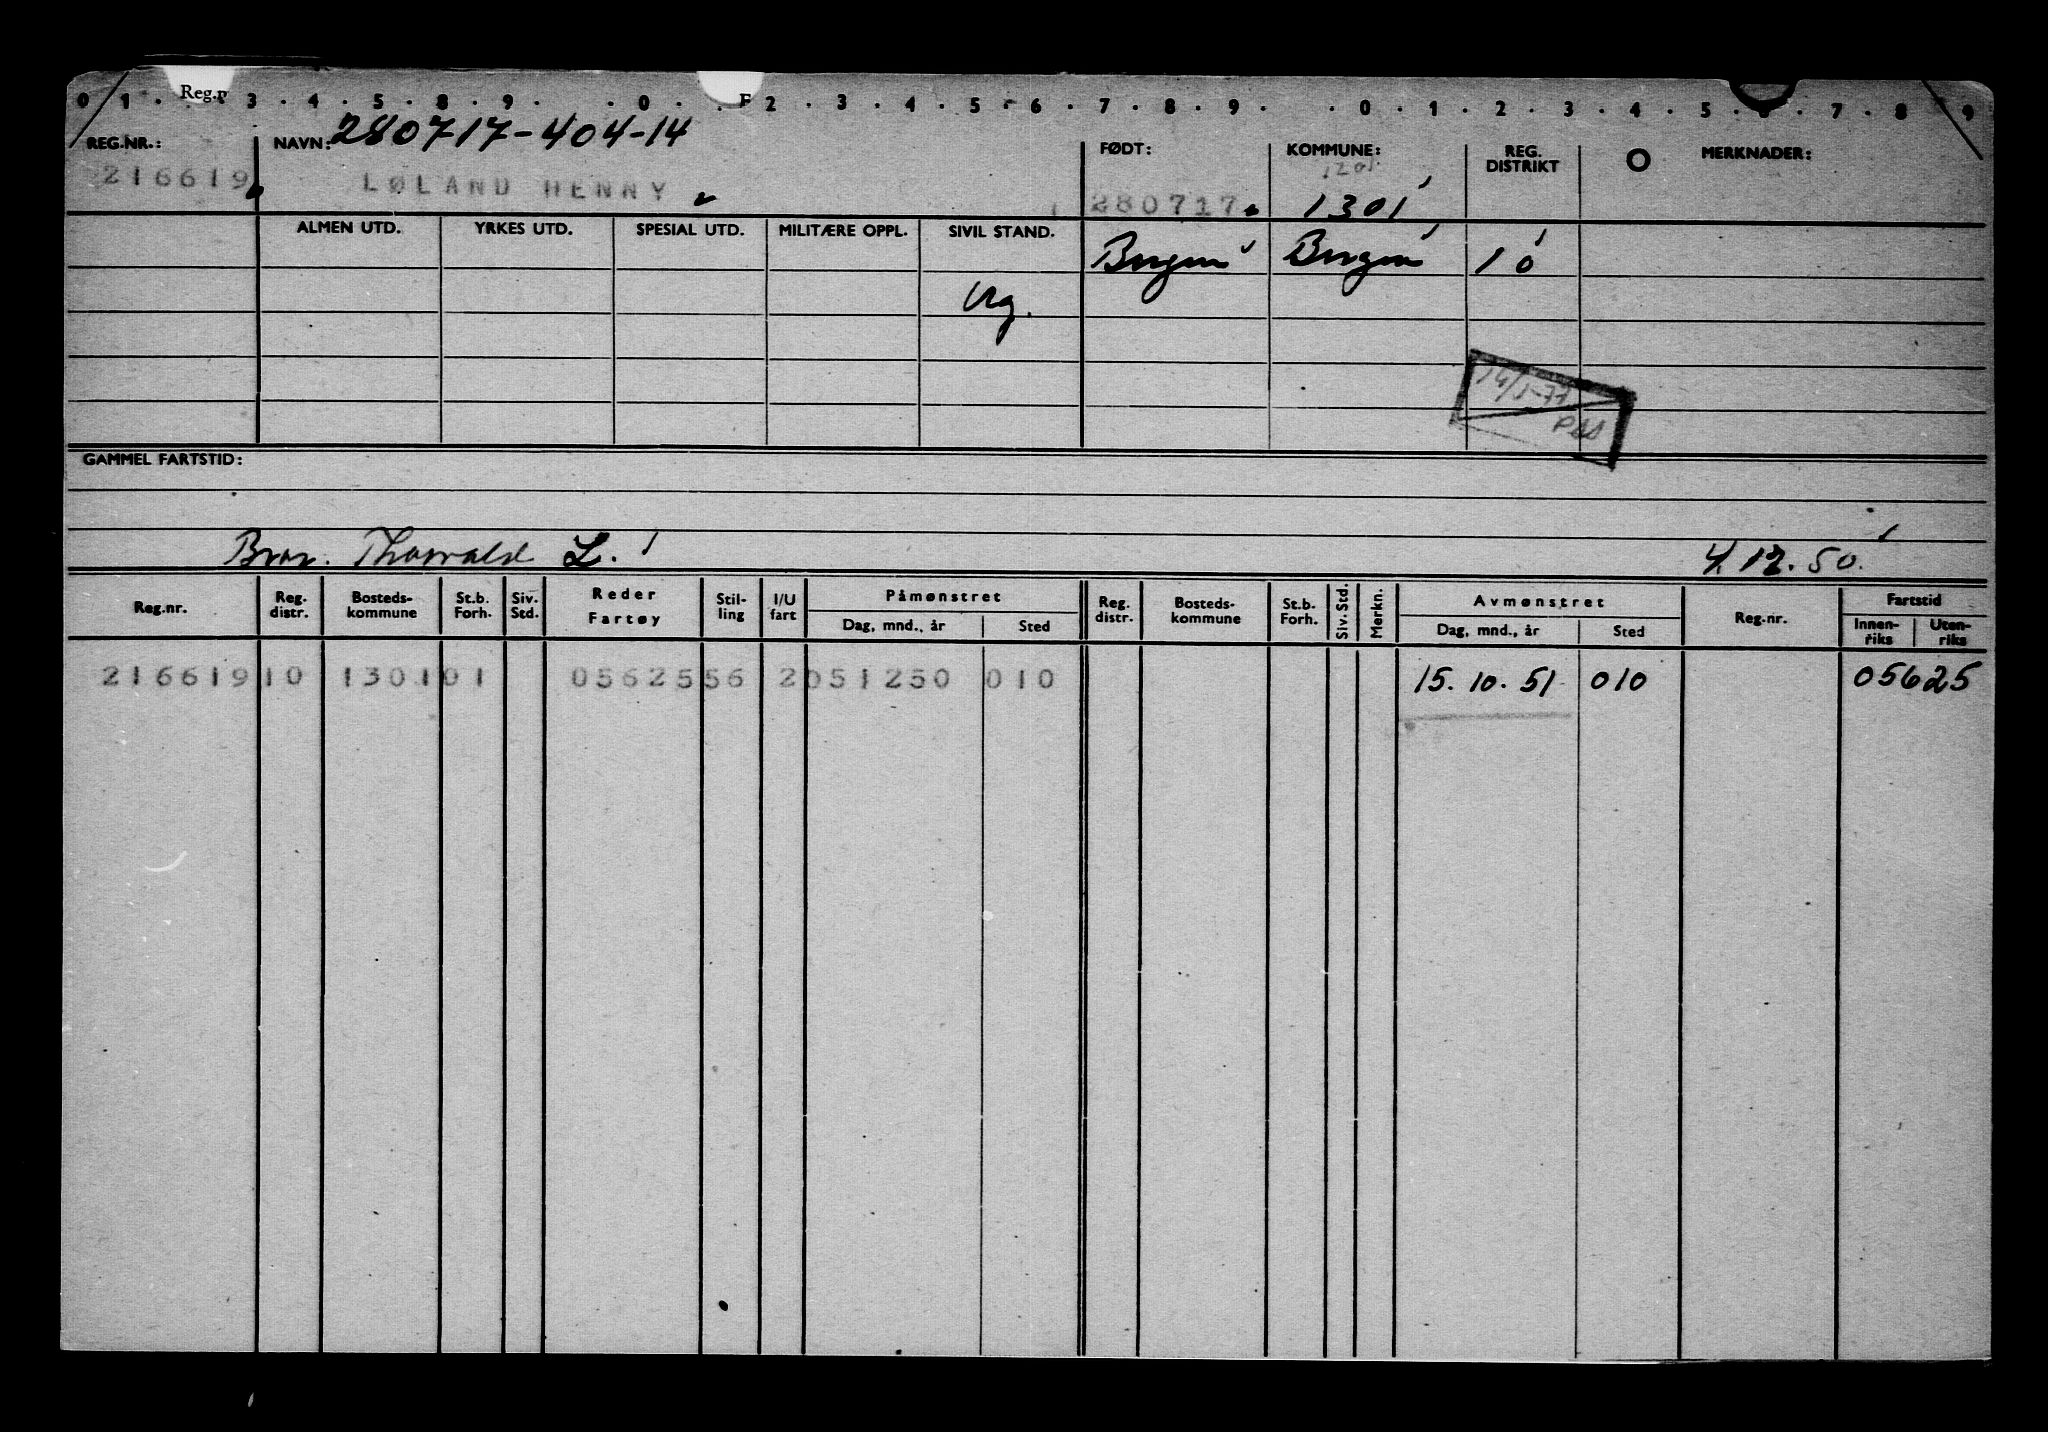 Reg.n F
0 1 . . 3 . 4 . 5 . 8 . 9 . . 0 . . 2 . 3 . 4 . 5 . 6 . 7 . 8 . 9 . . 0 . 1 . 2 . 3 . 4 . 5 . 6 . 7 . 8 . 9
REG.NR.: NAVN: 280717-404-14 FØDT: KOMMUNE: REG. DISTRIKT O MERKNADER:
1201
216619 LØLAND HENNY 280717 1301
ALMEN UTD. YRKES UTD. SPESIAL UTD. MILITÆRE OPPL. SIVIL STAND. Bergen Bergen 10
Ug.
14/1-77
GAMMEL FARTSTID:
Bror. Thorvald L. 4.12.50.
Reg.nr. Reg. distr. Bosteds- kommune St.b. Forh. Siv. Std. Reder Fartøy Stil- ling I/U fart Påmønstret Reg. distr. Bosteds- kommune St.b. Forh. Siv.Std. Merkn. Avmønstret Reg.nr. Fartstid
Dag, mnd., år Sted Dag, mnd., år Sted Innen- riks Uten- riks
216619 10 1301 01 05625 56 2 051250 010 15.10.51 010 05625